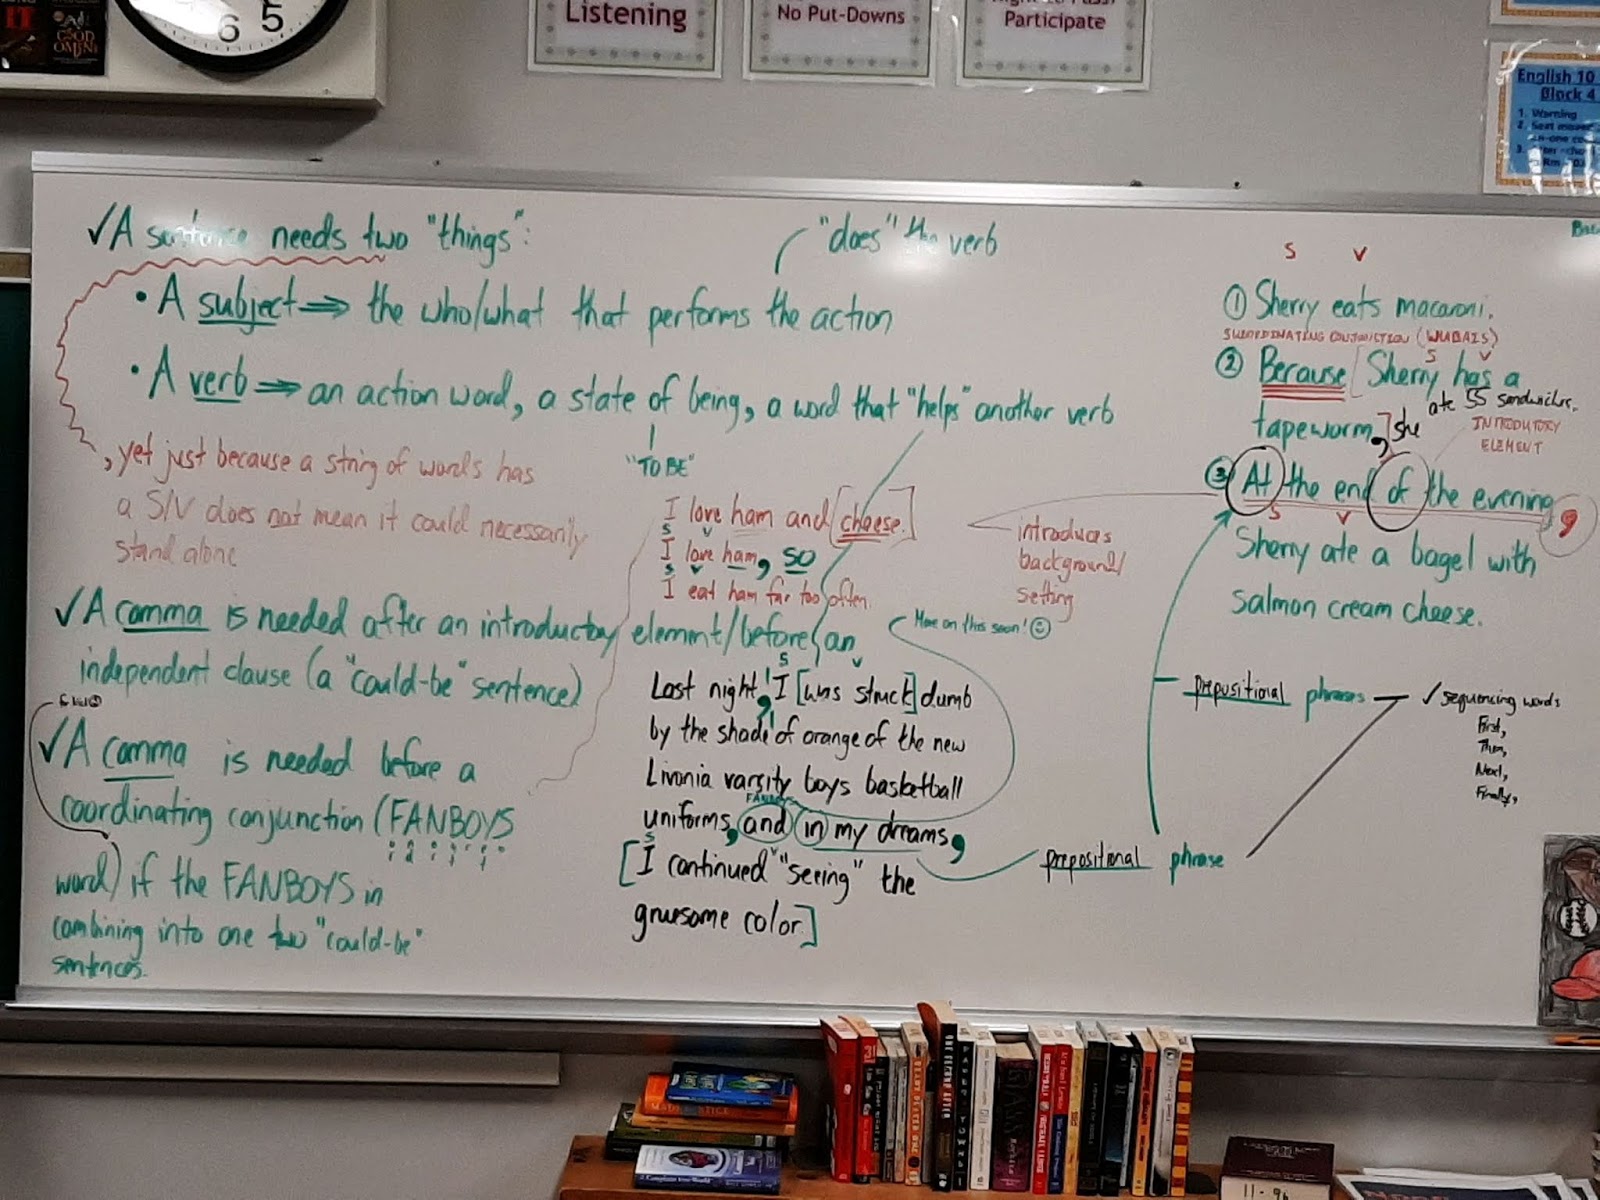 GOOD
OMENS
6 5
Listening
No Put-Downs
Participate
English 10
Block 4
1. Warning
✓A sentence needs two "things":
"does" the verb
• A subject ⇒ the who/what that performs the action
• A verb ⇒ an action word, a state of being, a word that "helps" another verb
"TO BE"
, yet just because a string of words has
a S/V does not mean it could necessarily
stand alone
I love ham and [cheese.]
S V
I love ham, so
S V
I eat ham far too often.
introduces
background/
setting
✓A comma is needed after an introductory element/before an
independent clause (a "could-be" sentence)
More on this soon! ☺
✓A comma is needed before a
coordinating conjunction (FANBOYS
word) if the FANBOYS in
combining into one two "could-be"
sentences.
S V
Last night, I [was struck] dumb
by the shade of orange of the new
Livonia varsity boys basketball
FANBOYS
uniforms, and in my dreams,
S V
[I continued "seeing" the
gruesome color.]
S V
① Sherry eats macaroni.
SUBORDINATING CONJUNCTION (WUBAIS)
S V
② Because [Sherry has a
tapeworm,] she ate 55 sandwiches.
INTRODUTORY
ELEMENT
③ At the end of the evening,
S V
Sherry ate a bagel with
salmon cream cheese.
prepositional phrases
✓ sequencing words
First,
Then,
Next,
Finally,
prepositional phrase
11-96